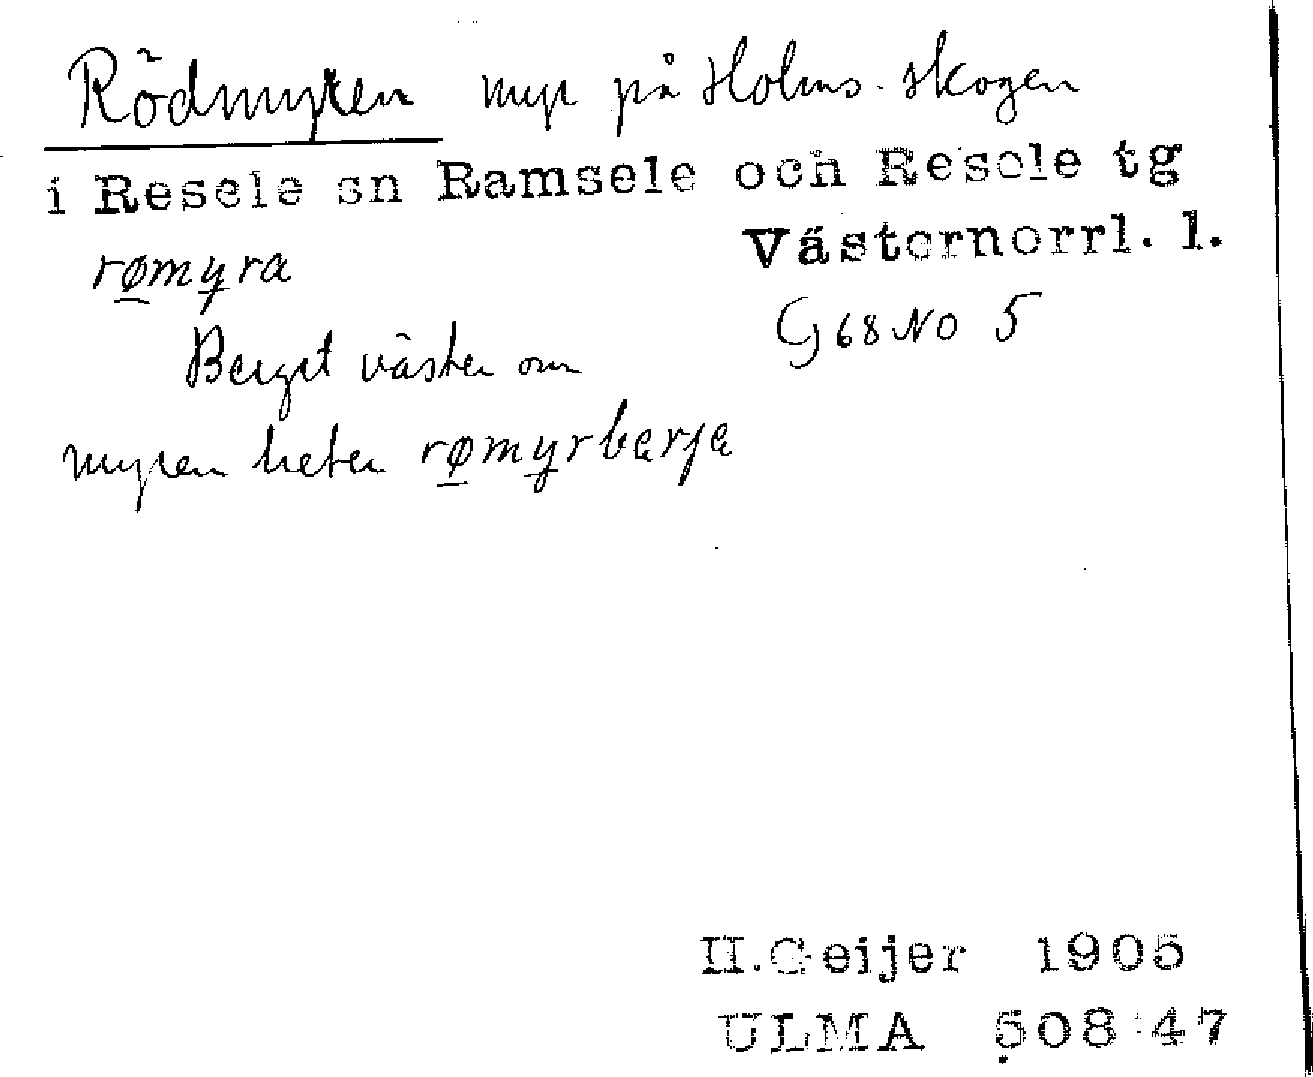 Rödmyren myr på Holms-skogen
i Resele sn Ramsele och Resele tg
Västernorrl. l.
rømyra
G 68 NO 5
Berget väster om
myren heter rømyrbærjɐ
H.Geijer 1905
ULMA 508:47